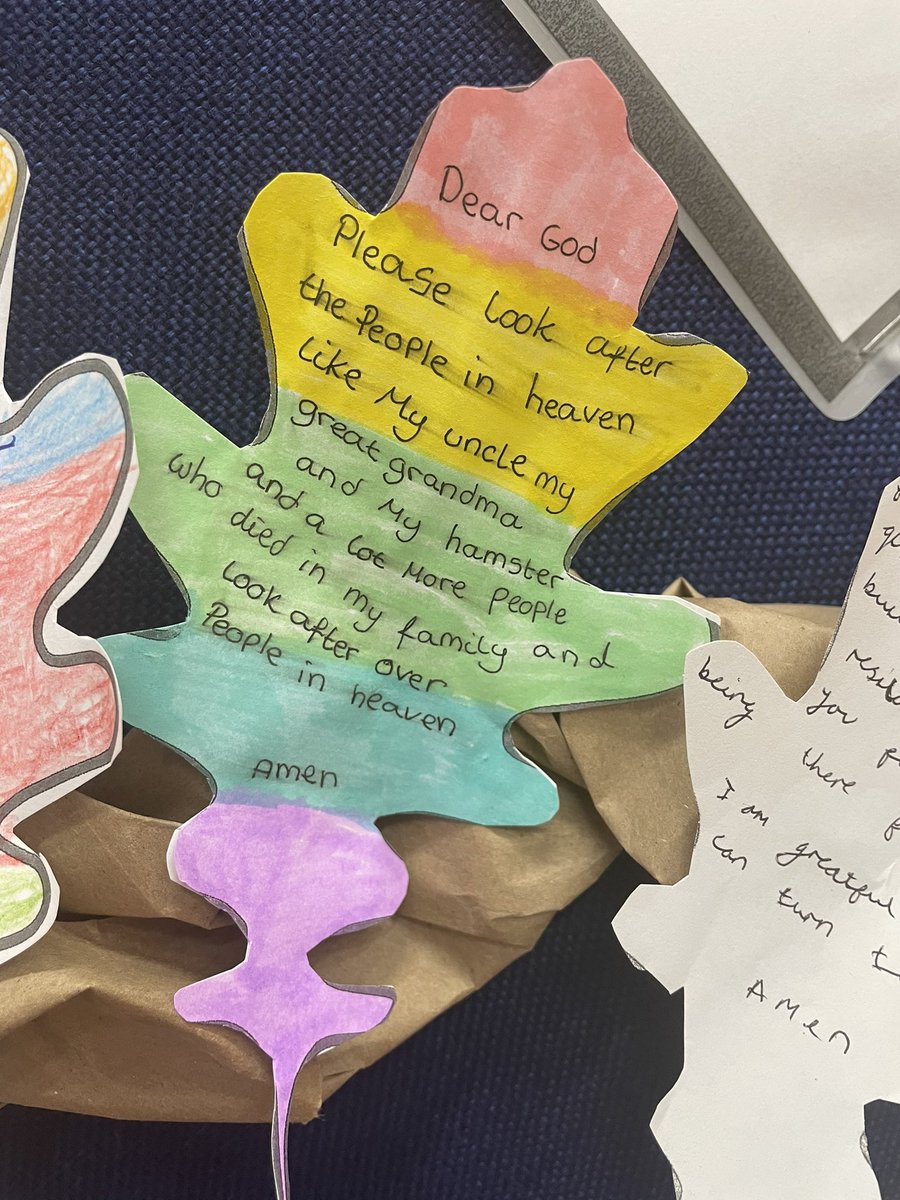 Dear God
Please look after
the People in heaven
like My uncle my
great grandma
and My hamster
and a lot More people
who died in my family and
look after over
People in heaven
Amen
being
you
there
I am greatful
can turn
Amen